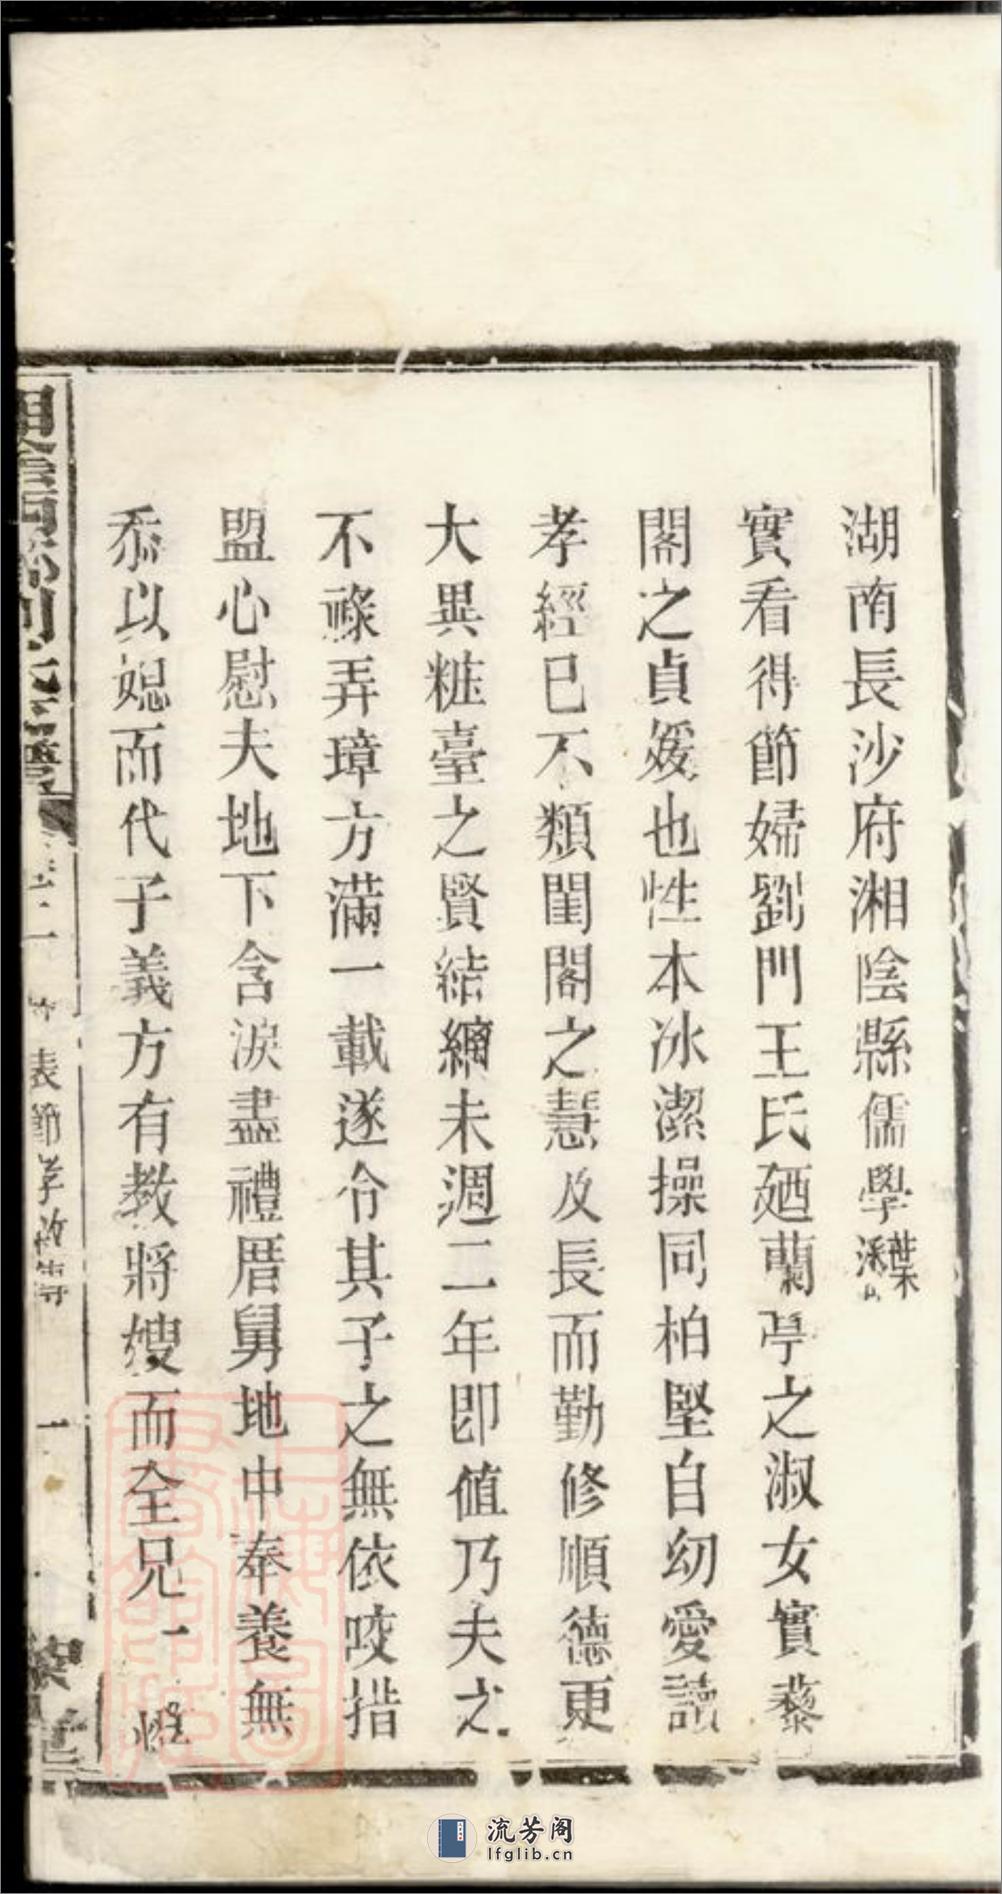 湖南長沙府湘陰縣儒學葉
實看得節婦劉門王氏廼蘭亭之淑女實藜
閣之貞媛也性本冰潔操同柏堅自幼愛讀
孝經已不類閨閣之慧及長而勤修順德更
大異粧臺之賢結縭未週二年即值乃夫之
不祿弄璋方滿一載遂令其子之無依咬措
盟心慰夫地下含淚盡禮厝舅地中奉養無
忝以媳而代子義方有教將嫂而全兄一惟
劉氏
表節孝
一
流芳阁
lfglib.cn